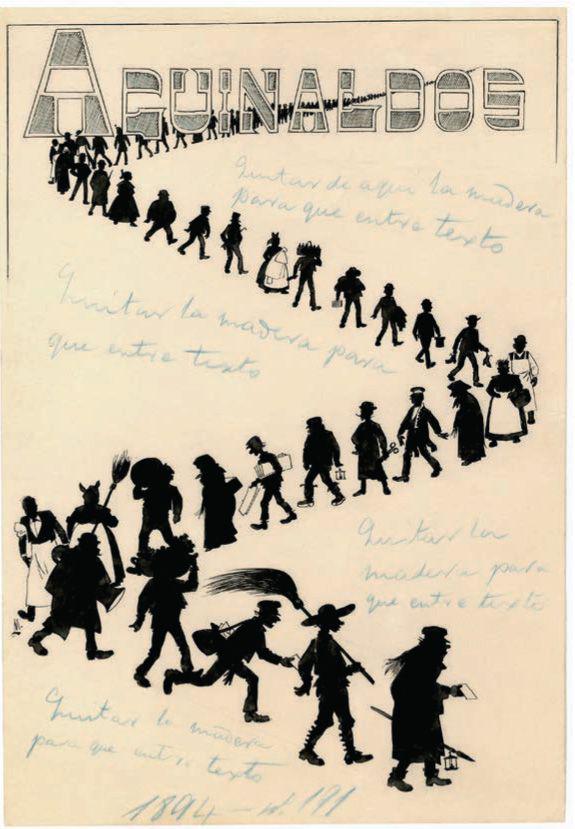 AGUINALDOS
Quitar de aqui la madera
para que entre texto
Quitar la madera para
que entre texto
Quitar la
madera para
que entre texto
Quitar la madera
para que entre texto
1894 - nº. 191